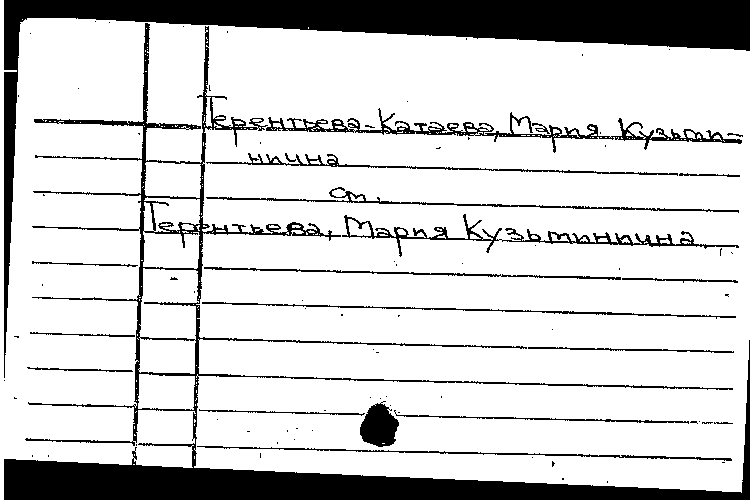 Терентьева-Катаева, Мария Кузьми-
нична
см.
Терентьева, Мария Кузьминична